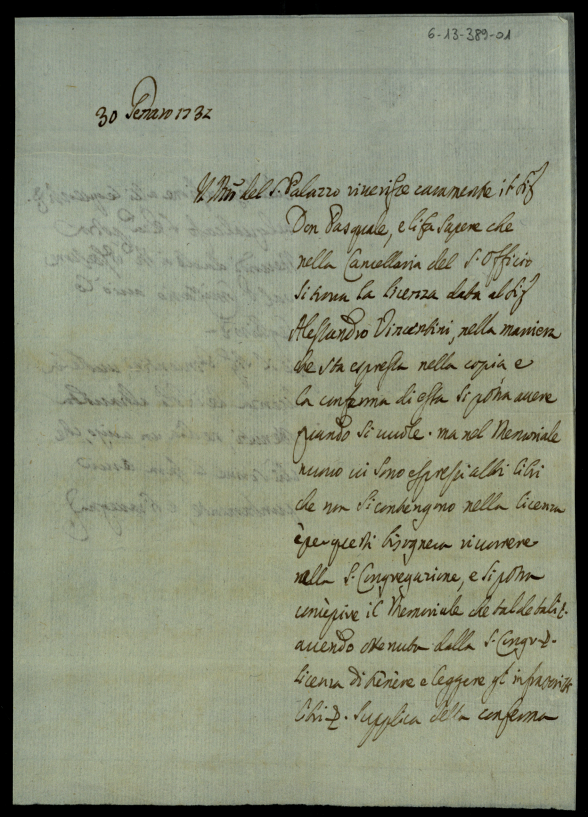 6-13-389-01
30 Genaro 1732
Il del S. Palazzo riverisce caramente il Sig
Don Pasquale, e li fa sapere che
nella Cancellaria del S. Officio
si trova la licenza data al Sig
Alessandro Vincentini, nella maniera
che sta espressa nella copia e
la conferma di essa si potrà avere
quando si vuole. ma nel Memoriale
nuovo vi sono espressi altri libri
che non si contengono nella licenza
e per questi bisognera ricorrere
nella S. Congregazione, e si potrà
concepire il Memoriale che tal de tali
avendo ottenuta dalla S. Congr.
licenza di tenere e leggere gl' infrascritti
libri. supplica della conferma